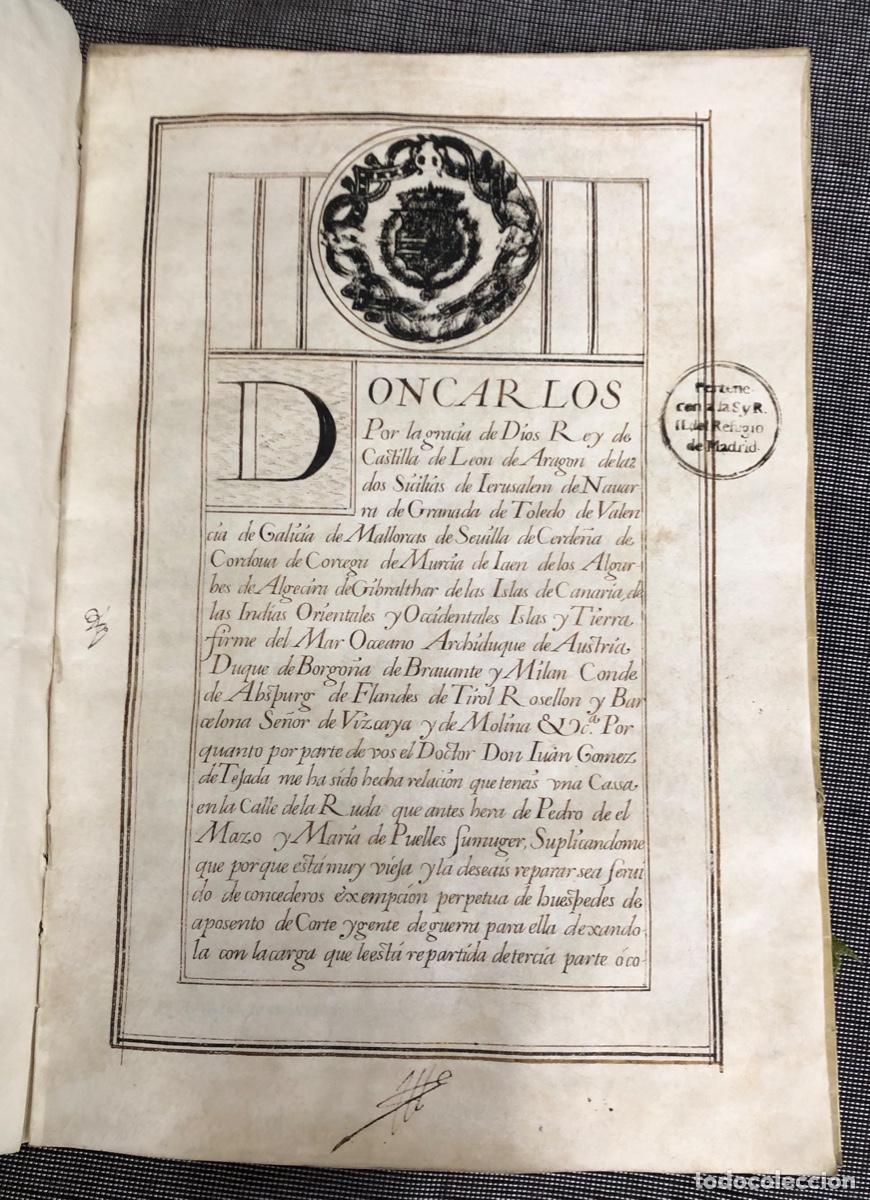 DON CARLOS
Por la gracia de Dios Rey de
Castilla de Leon de Aragon de laz
dos Sicilias de Ierusalem de Nauar
ra de Granada de Toledo de Valen
cia de Galicia de Mallorcas de Seuilla de Cerdeña de
Cordoua de Corcega de Murcia de Iaen de los Algar-
bes de Algecira de Gibralthar de las Islas de Canaria de
las Indias Orientales y Occidentales Islas y Tierra
firme del Mar Occeano Archiduque de Austria
Duque de Borgoña de Brauante y Milan Conde
de Abspurg de Flandes de Tirol Rosellon y Bar
celona Señor de Vizcaya y de Molina &c.ª Por
quanto por parte de vos el Doctor Don Iuan Gomez
de Tejada me ha sido hecha relacion que teneis vna Cassa
en la Calle de la Ruda que antes hera de Pedro de el
Mazo y Maria de Puelles su muger, Suplicandome
que porque está muy vieja y la deseais reparar sea serui
do de concederos exempcion perpetua de huespedes de
aposento de Corte y gente de guerra para ella dexando
la con la carga que le está repartida de tercia parte ó co-
Pertene-
cen a la S y R.
H. del Refugio
de Madrid.
todocoleccion